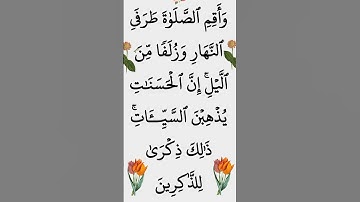 وَأَقِمِ ٱلصَّلَوٰةَ طَرَفَيِ
ٱلنَّهَارِ وَزُلَفًا مِّنَ
ٱلَّيْلِ ۚ إِنَّ ٱلْحَسَنَـٰتِ
يُذْهِبْنَ ٱلسَّيِّـَٔاتِ ۚ
ذَٰلِكَ ذِكْرَىٰ
لِلذَّٰكِرِينَ